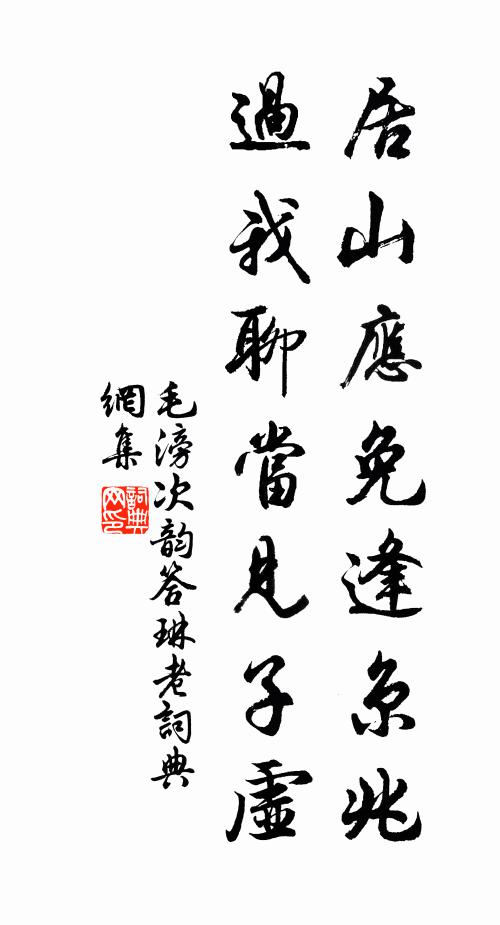 居山應免逢京兆
過我聊當見子虛
毛滂次韵答琳老詞典
網集
詞典
网印